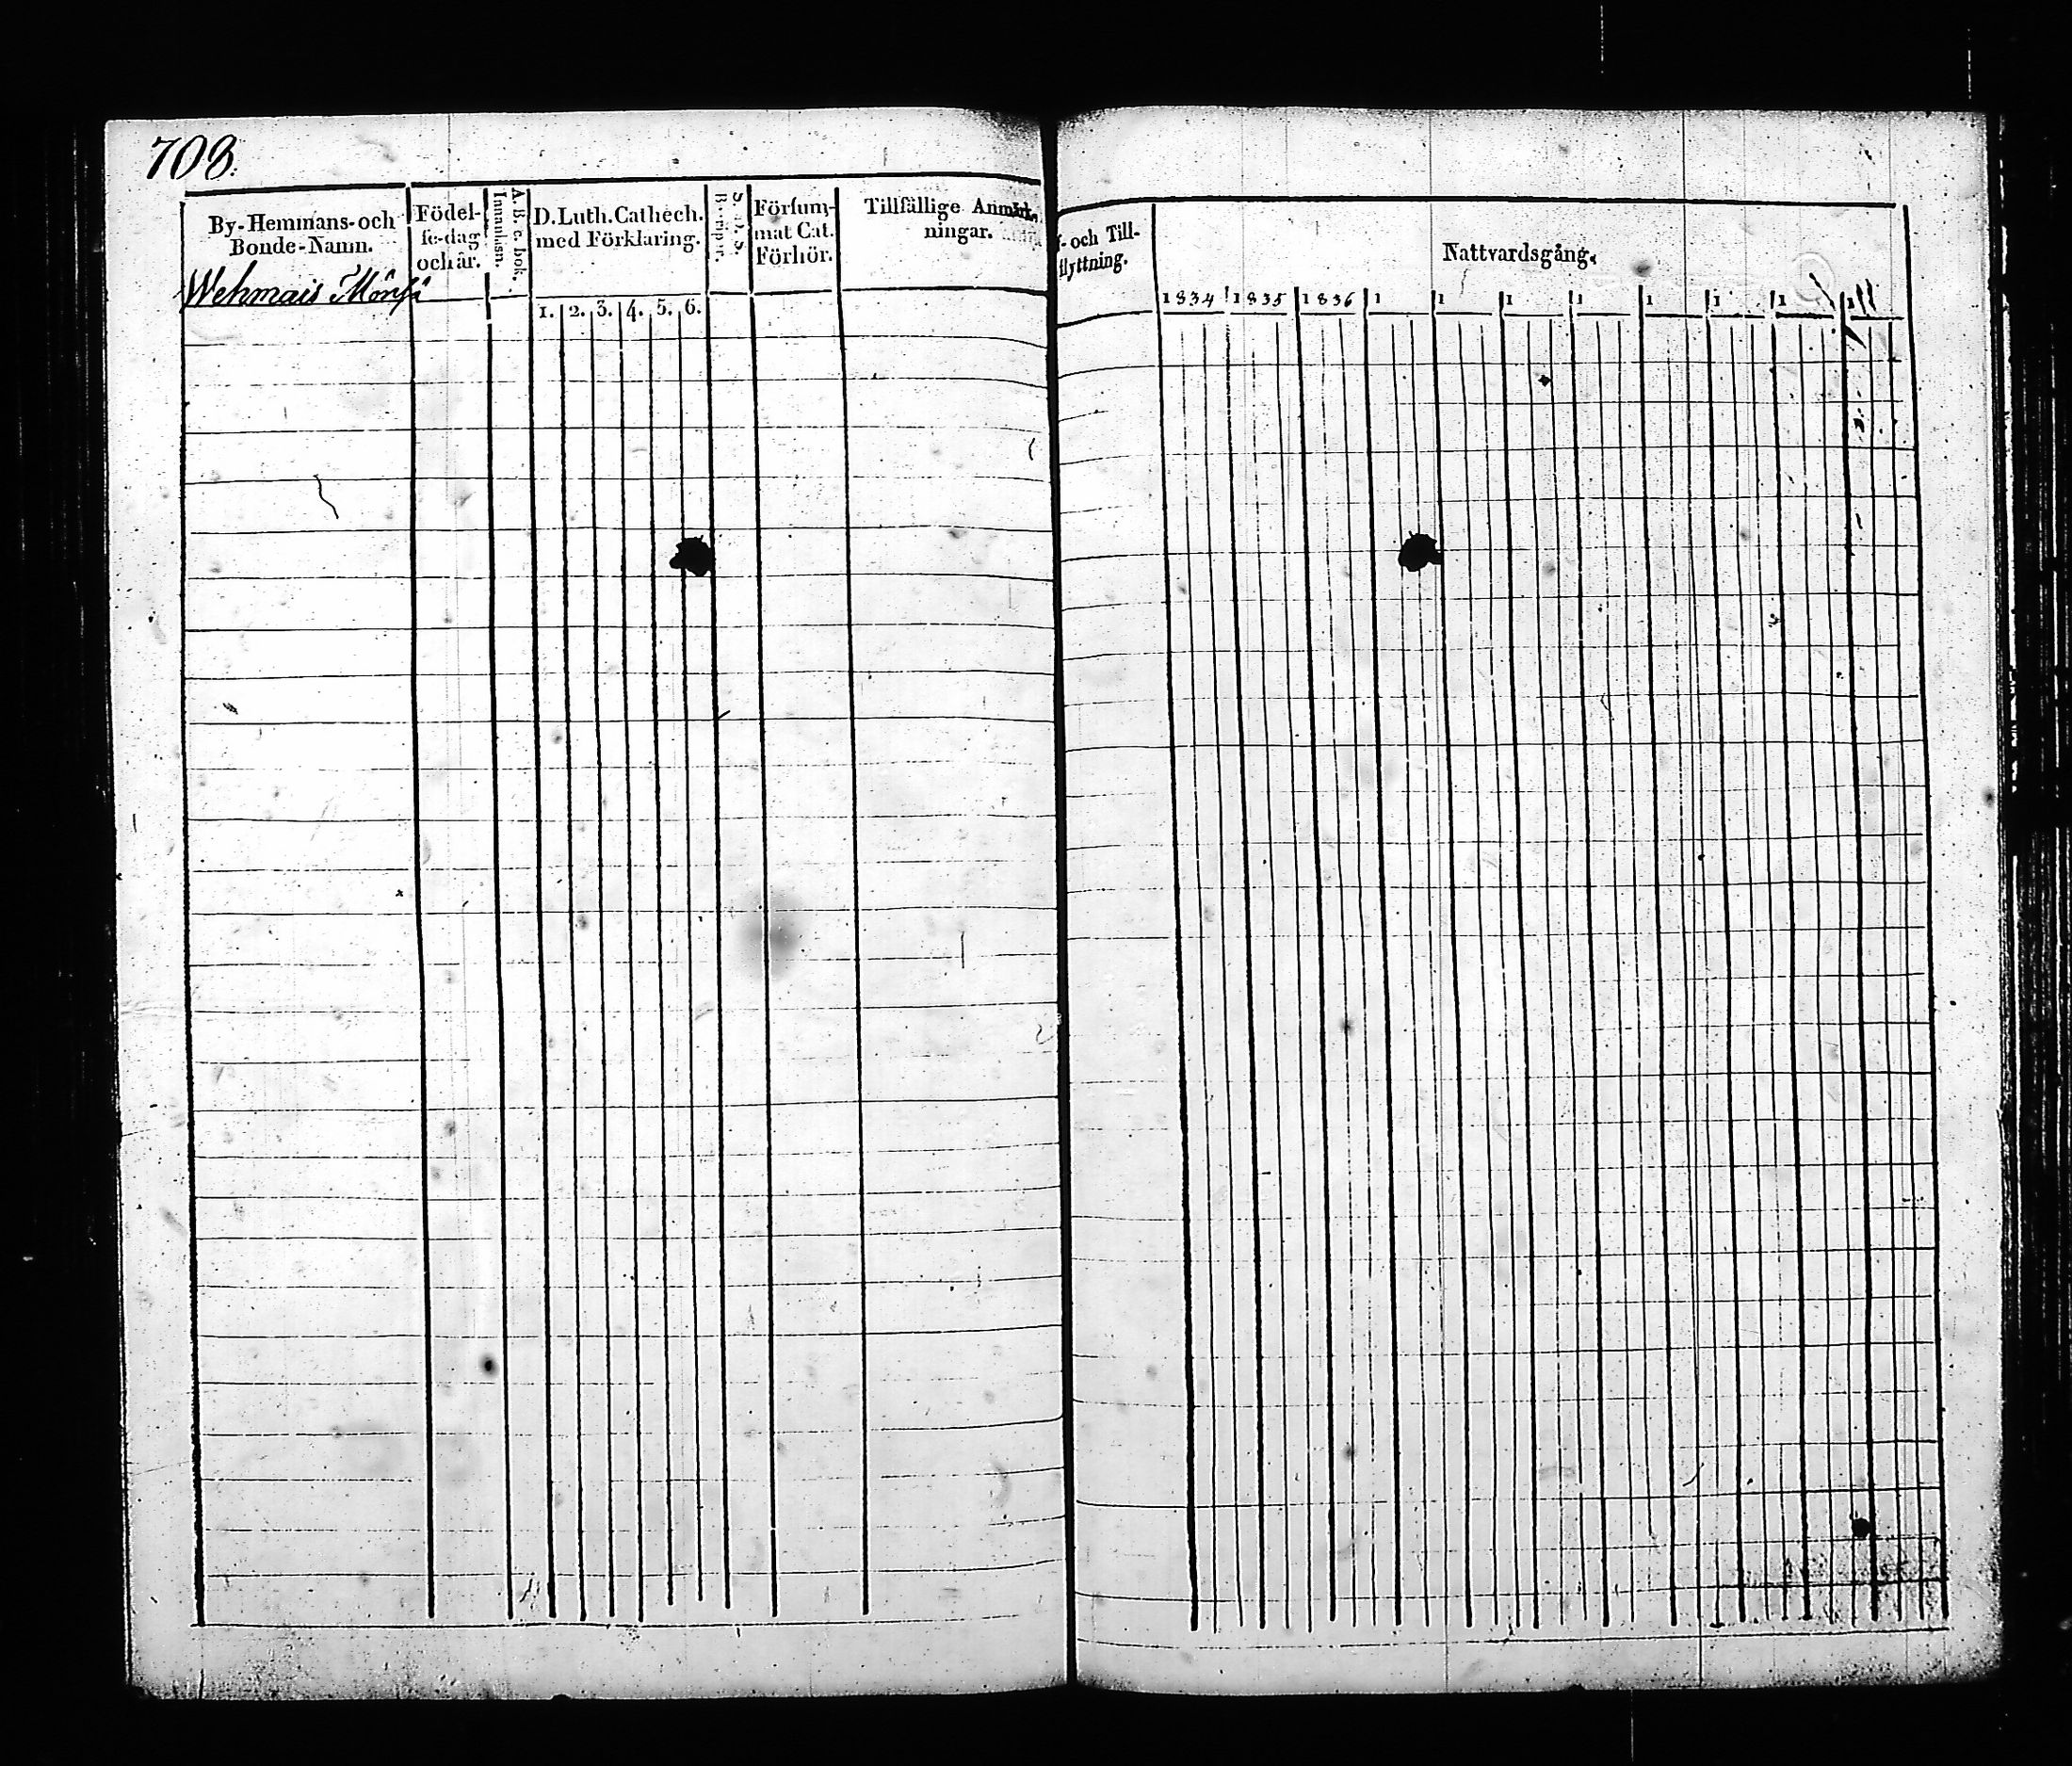 708.
By-Hemmans- och
Bonde-Namn.
Wehmais
Födel-
se-dag
och år.
A. B. c. bok.
Innanläsn.
D. Luth. Cathech.
med Förklaring.
1. 2. 3. 4. 5. 6.
Försum-
mat Cat.
Förhör.
Tillfällige Anmärk-
ningar.
och Till-
flyttning.
Nattvardsgång.
1834 1835 1836 1 1 1 1 1 1 1 1